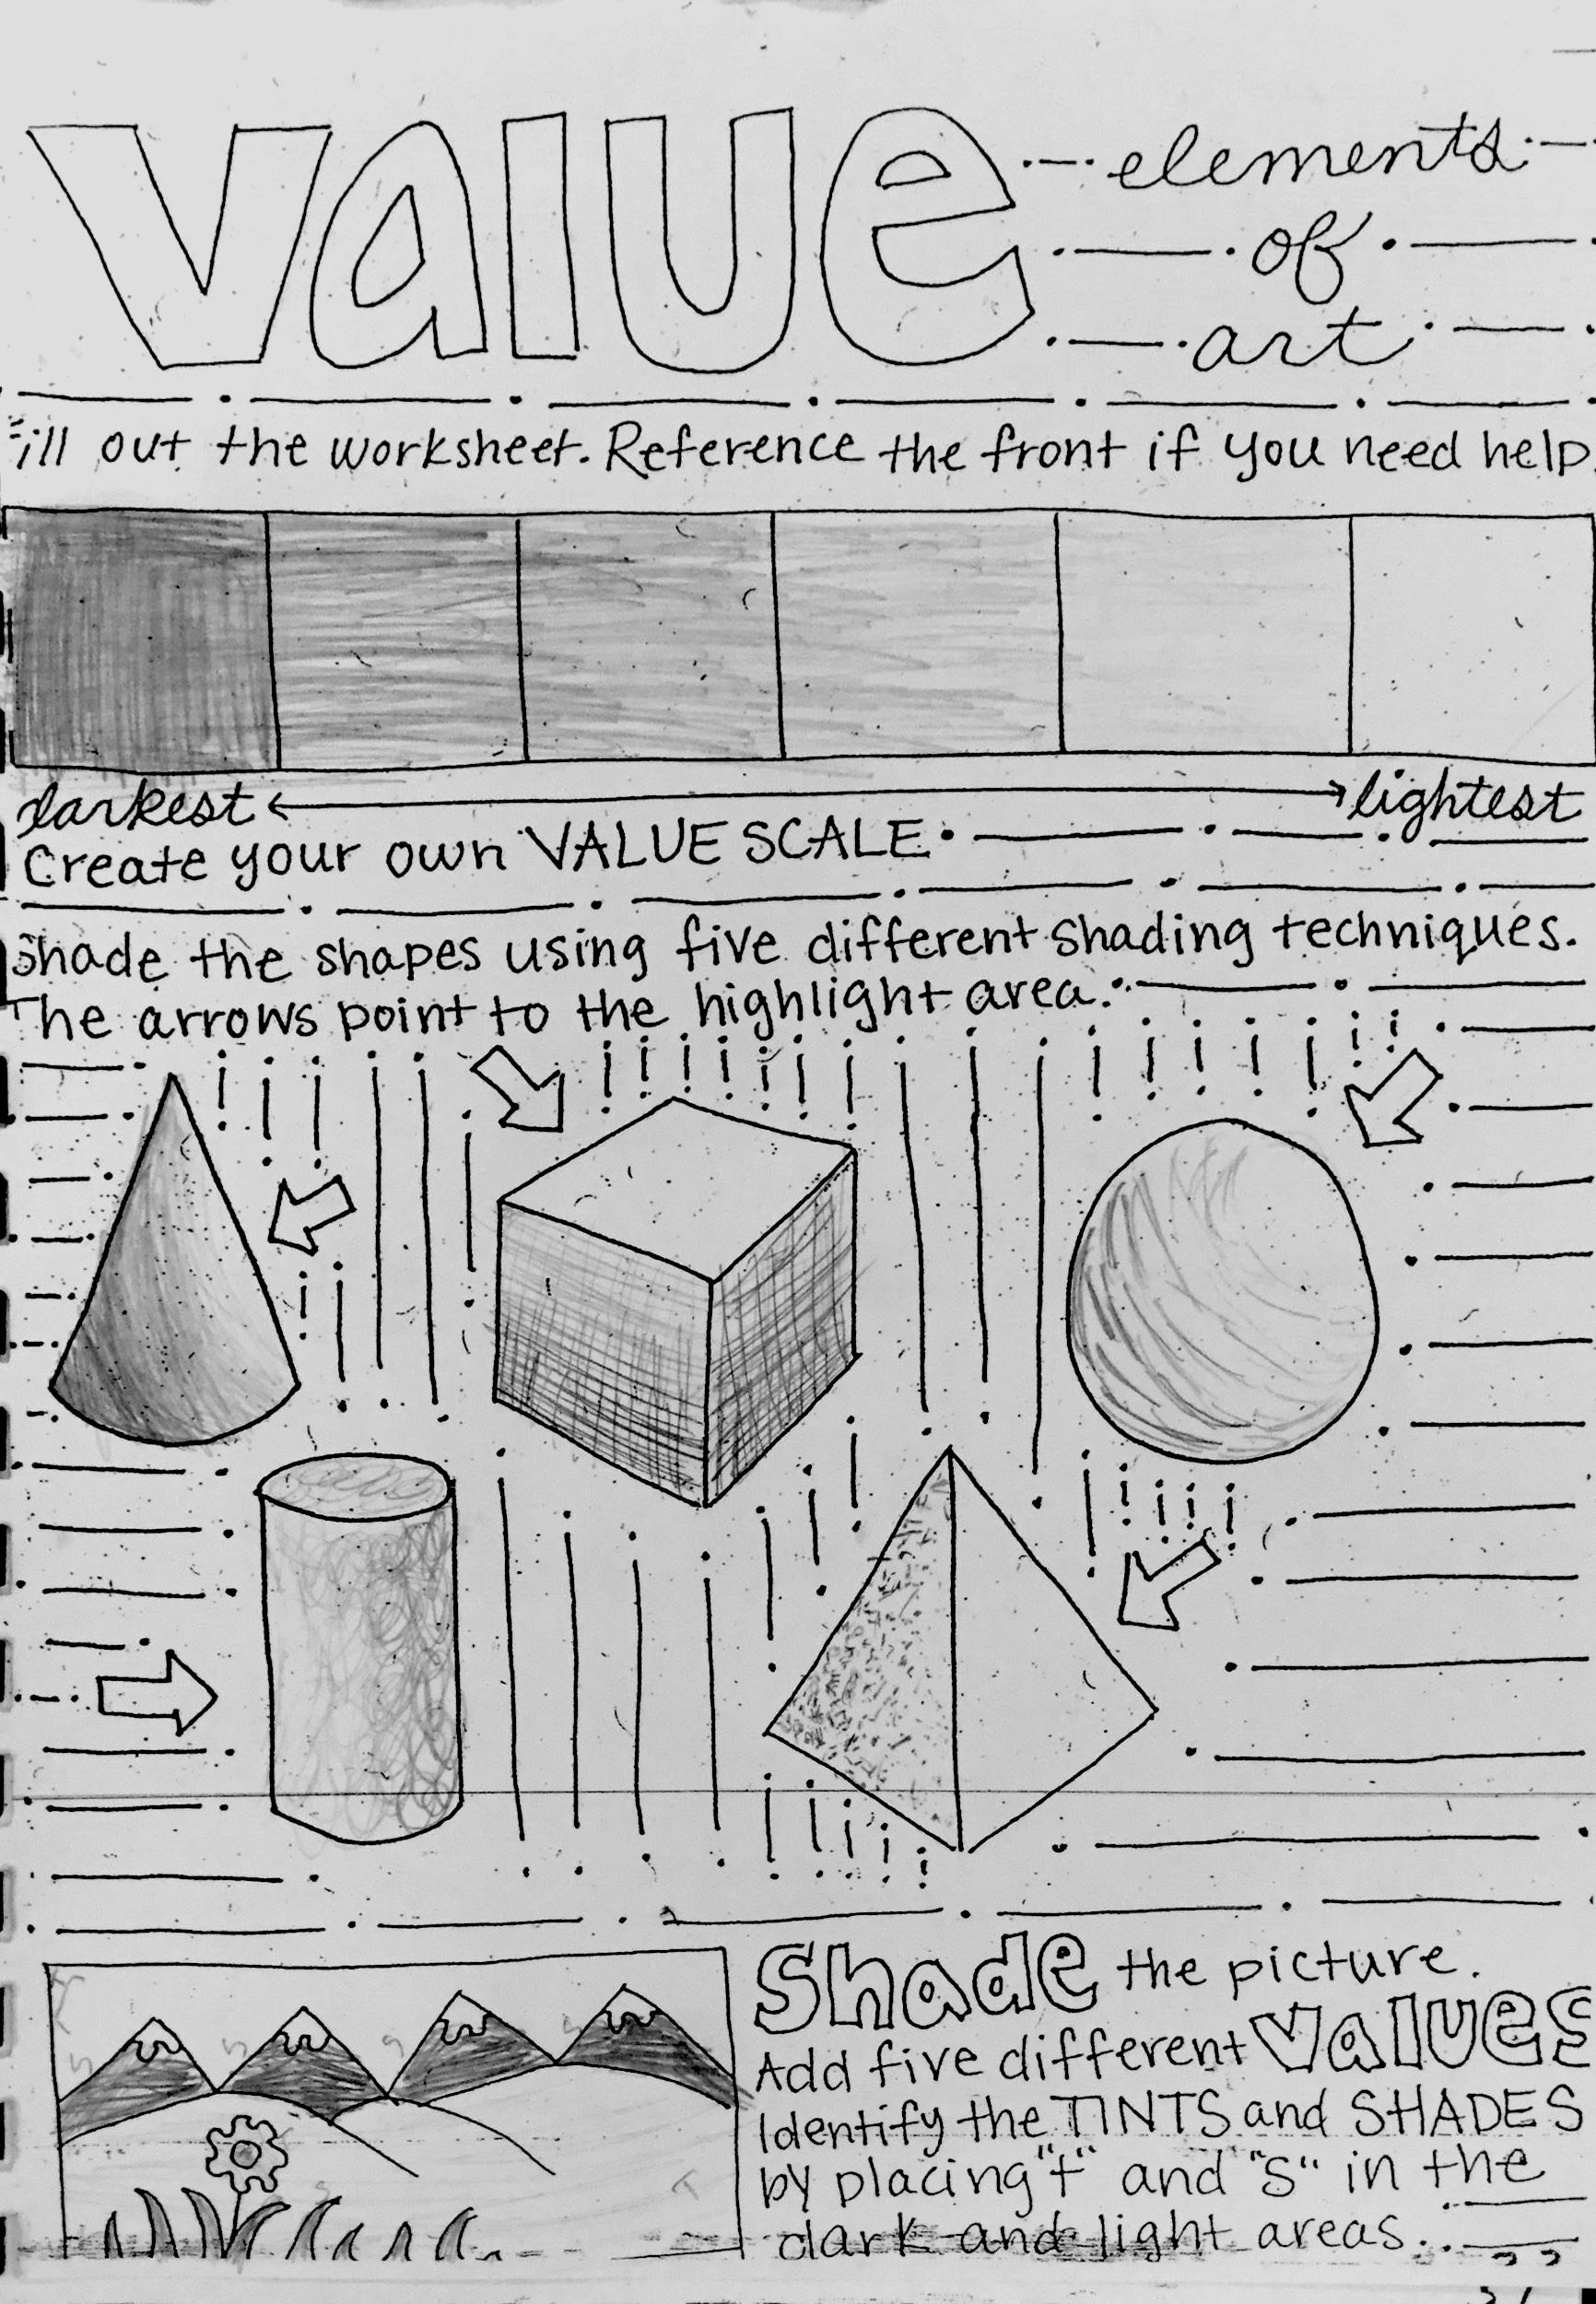 value
elements
of
art
Fill out the worksheet. Reference the front if you need help.
darkest
lightest
Create your own VALUE SCALE
Shade the shapes using five different shading techniques.
The arrows point to the highlight area.
Shade the picture.
Add five different Values
Identify the TINTS and SHADES
by placing "t" and "S" in the
dark and light areas.